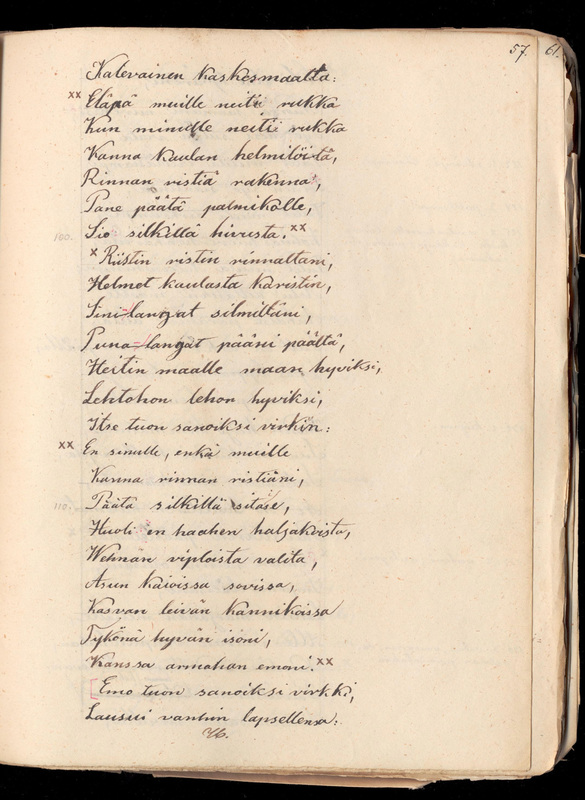 57. 61.
Kalevainen kaskesmaalta:
xx Eläpä muille neiti rukka
Kun minulle neiti rukka
Kanna kaulan helmilöitä,
Rinnan ristiä rakenna,
Pane päätä palmikolle,
100. Sio silkillä hivusta. xx
x Riistin ristin rinnaltani,
Helmet kaulasta karistin,
Sini-langat silmiltäni,
Puna-langat pääni päältä,
Heitin maalle maan hyviksi,
Lehtohon lehon hyviksi,
Itse tuon sanoiksi virkin:
xx En sinulle, enkä muille
Kanna rinnan ristiäni,
110. Päätä silkillä sitäse,
Huoli en haahen haljakoista,
Wehnän viploista valita,
Asun kaioissa sovissa,
Kasvan leivän kannikoissa
Tykönä hyvän isoni,
Kanssa armahan emoni. xx
[Emo tuon sanoiksi virkki,
Lausui vanhin lapsellensa: